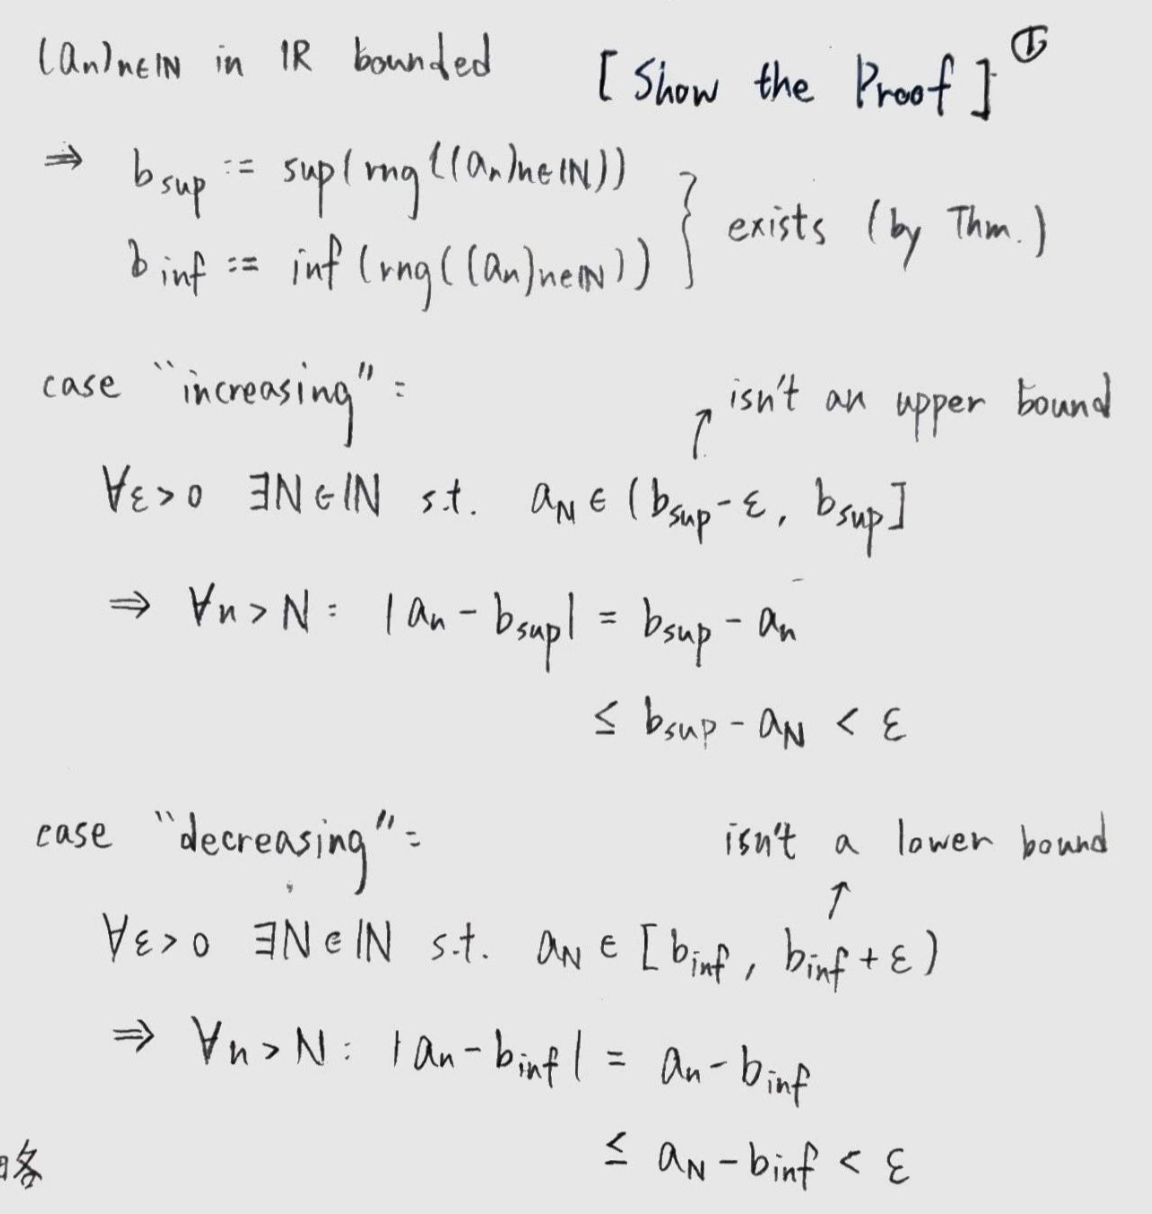 (an)n∈ℕ in ℝ bounded [Show the Proof] ①
⇒ b_sup := sup(rng((an)n∈ℕ))
b_inf := inf(rng((an)n∈ℕ)) } exists (by Thm.)
case "increasing":
isn't an upper bound
∀ε>0 ∃N∈ℕ s.t. a_N ∈ (b_sup-ε, b_sup]
⇒ ∀n>N: |an - b_sup| = b_sup - an
≤ b_sup - a_N < ε
case "decreasing":
isn't a lower bound
∀ε>0 ∃N∈ℕ s.t. a_N ∈ [b_inf, b_inf+ε)
⇒ ∀n>N: |an - b_inf| = an - b_inf
≤ a_N - b_inf < ε